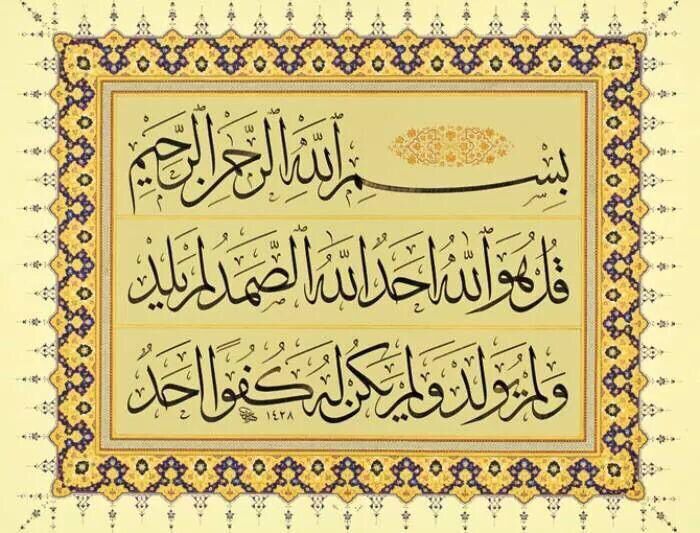 بِسْمِ ٱللَّهِ ٱلرَّحْمٰنِ ٱلرَّحِيمِ
قُلْ هُوَ ٱللَّهُ اَحَدٌ اَللَّهُ ٱلصَّمَدُ لَمْ يَلِدْ
وَلَمْ يُولَدْ وَلَمْ يَكُنْ لَهُ كُفُوًا اَحَدٌ
١٤٢٨